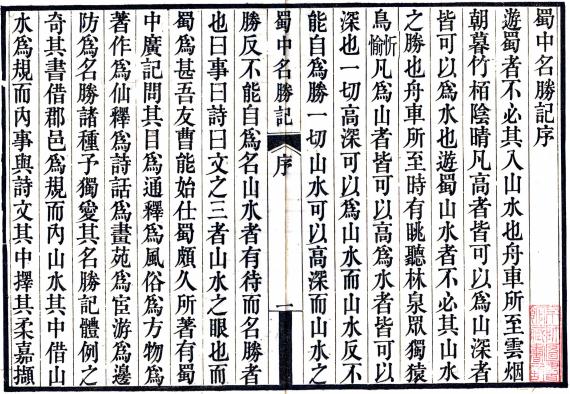 蜀中名勝記序
遊蜀者不必其入山水也舟車所至雲烟
朝暮竹栢陰晴凡高者皆可以爲山深者
皆可以爲水也遊蜀山水者不必其山水
之勝也舟車所至時有眺聽林泉眾獨猿
鳥忻愉凡爲山者皆可以高爲水者皆可以
深也一切高深可以爲山水而山水反不
能自爲勝一切山水可以高深而山水之
蜀中名勝記 序 一
勝反不能自爲名山水者有待而名勝者
也曰事曰詩曰文之三者山水之眼也而
蜀爲甚吾友曹能始仕蜀頗久所著有蜀
中廣記問其目爲通釋爲風俗爲方物爲
著作爲仙釋爲詩話爲畫苑爲宦游爲邊
防爲名勝諸種予獨愛其名勝記體例之
奇其書借郡邑爲規而內山水其中借山
水爲規而內事與詩文其中擇其柔嘉擷